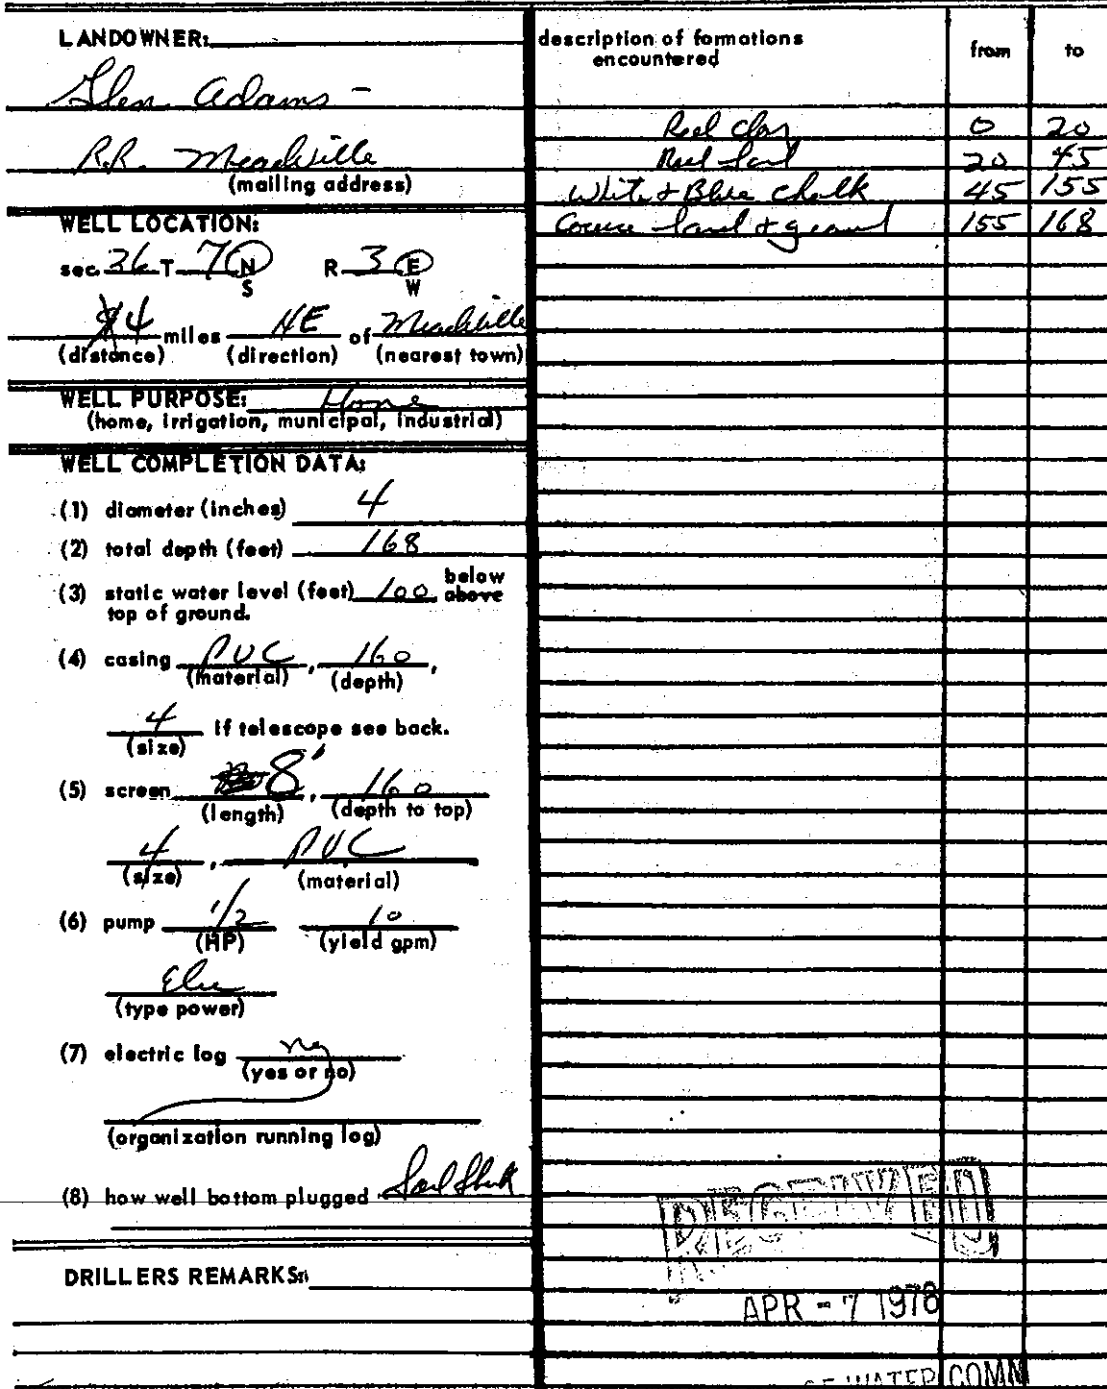 LANDOWNER:
Glen Adams -
R.R. Meadville
(mailing address)
WELL LOCATION:
sec. 36 T 7 N R 3 E
S W
4 miles NE of Meadville
(distance) (direction) (nearest town)
WELL PURPOSE: Home
(home, irrigation, municipal, industrial)
WELL COMPLETION DATA:
(1) diameter (inches) 4
(2) total depth (feet) 168
(3) static water level (feet) 100 below above
top of ground.
(4) casing PVC, 160,
(material) (depth)
4 If telescope see back.
(size)
(5) screen 8', 160
(length) (depth to top)
4, PVC
(size) (material)
(6) pump 1/2 10
(HP) (yield gpm)
Elec
(type power)
(7) electric log no
(yes or no)
(organization running log)
(8) how well bottom plugged
DRILLERS REMARKS:
description of formations from to
encountered
Red clay 0 20
Red Sand 20 45
White + Blue chalk 45 155
Coarse Sand + gravel 155 168
RECEIVED
APR - 7 1978
OF WATER COMM